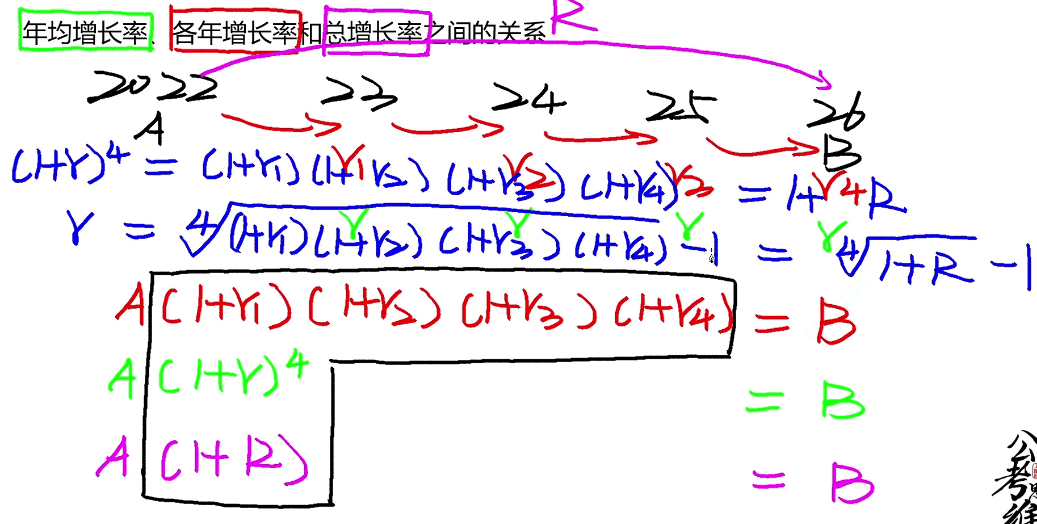 年均增长率、各年增长率和总增长率之间的关系 R
2022 23 24 25 26
A B
r1 r2 r3 r4
(1+r)⁴ = (1+r1)(1+r2)(1+r3)(1+r4) = 1+R
r r r r
r = ⁴√(1+r1)(1+r2)(1+r3)(1+r4) -1 = ⁴√1+R -1
A(1+r1)(1+r2)(1+r3)(1+r4) = B
A(1+r)⁴ = B
A(1+R) = B
公考